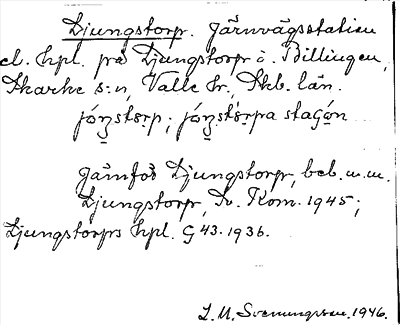 Ljungstorp. Järnvägsstation
el. hpl. på Ljungstorp i Billingen,
Skarke s:n, Valle hr, Skb. län.
Jämför Ljungstorp, beb. m.m.
Ljungstorp, Sv. Kom. 1945;
Ljungstorps hpl. G 43. 1936.
L. M. Svenungsson. 1946.